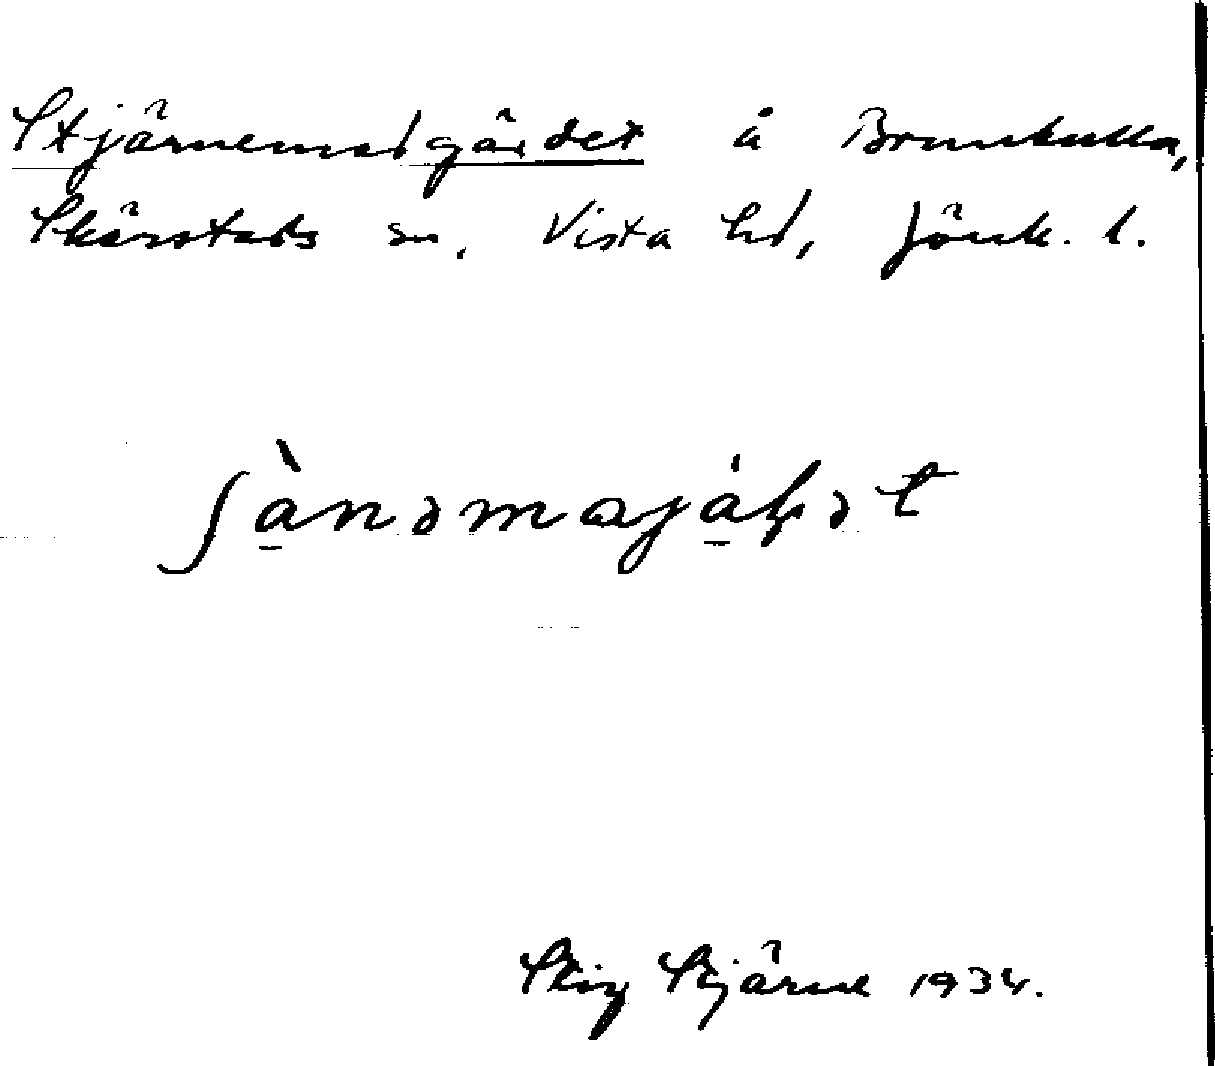 Stjärnemadgärdet å Brunskulla,
Skärstads sn, Vista hd, Jönk. l.
ʃànəmajáḷət
Stig Stjärne 1934.